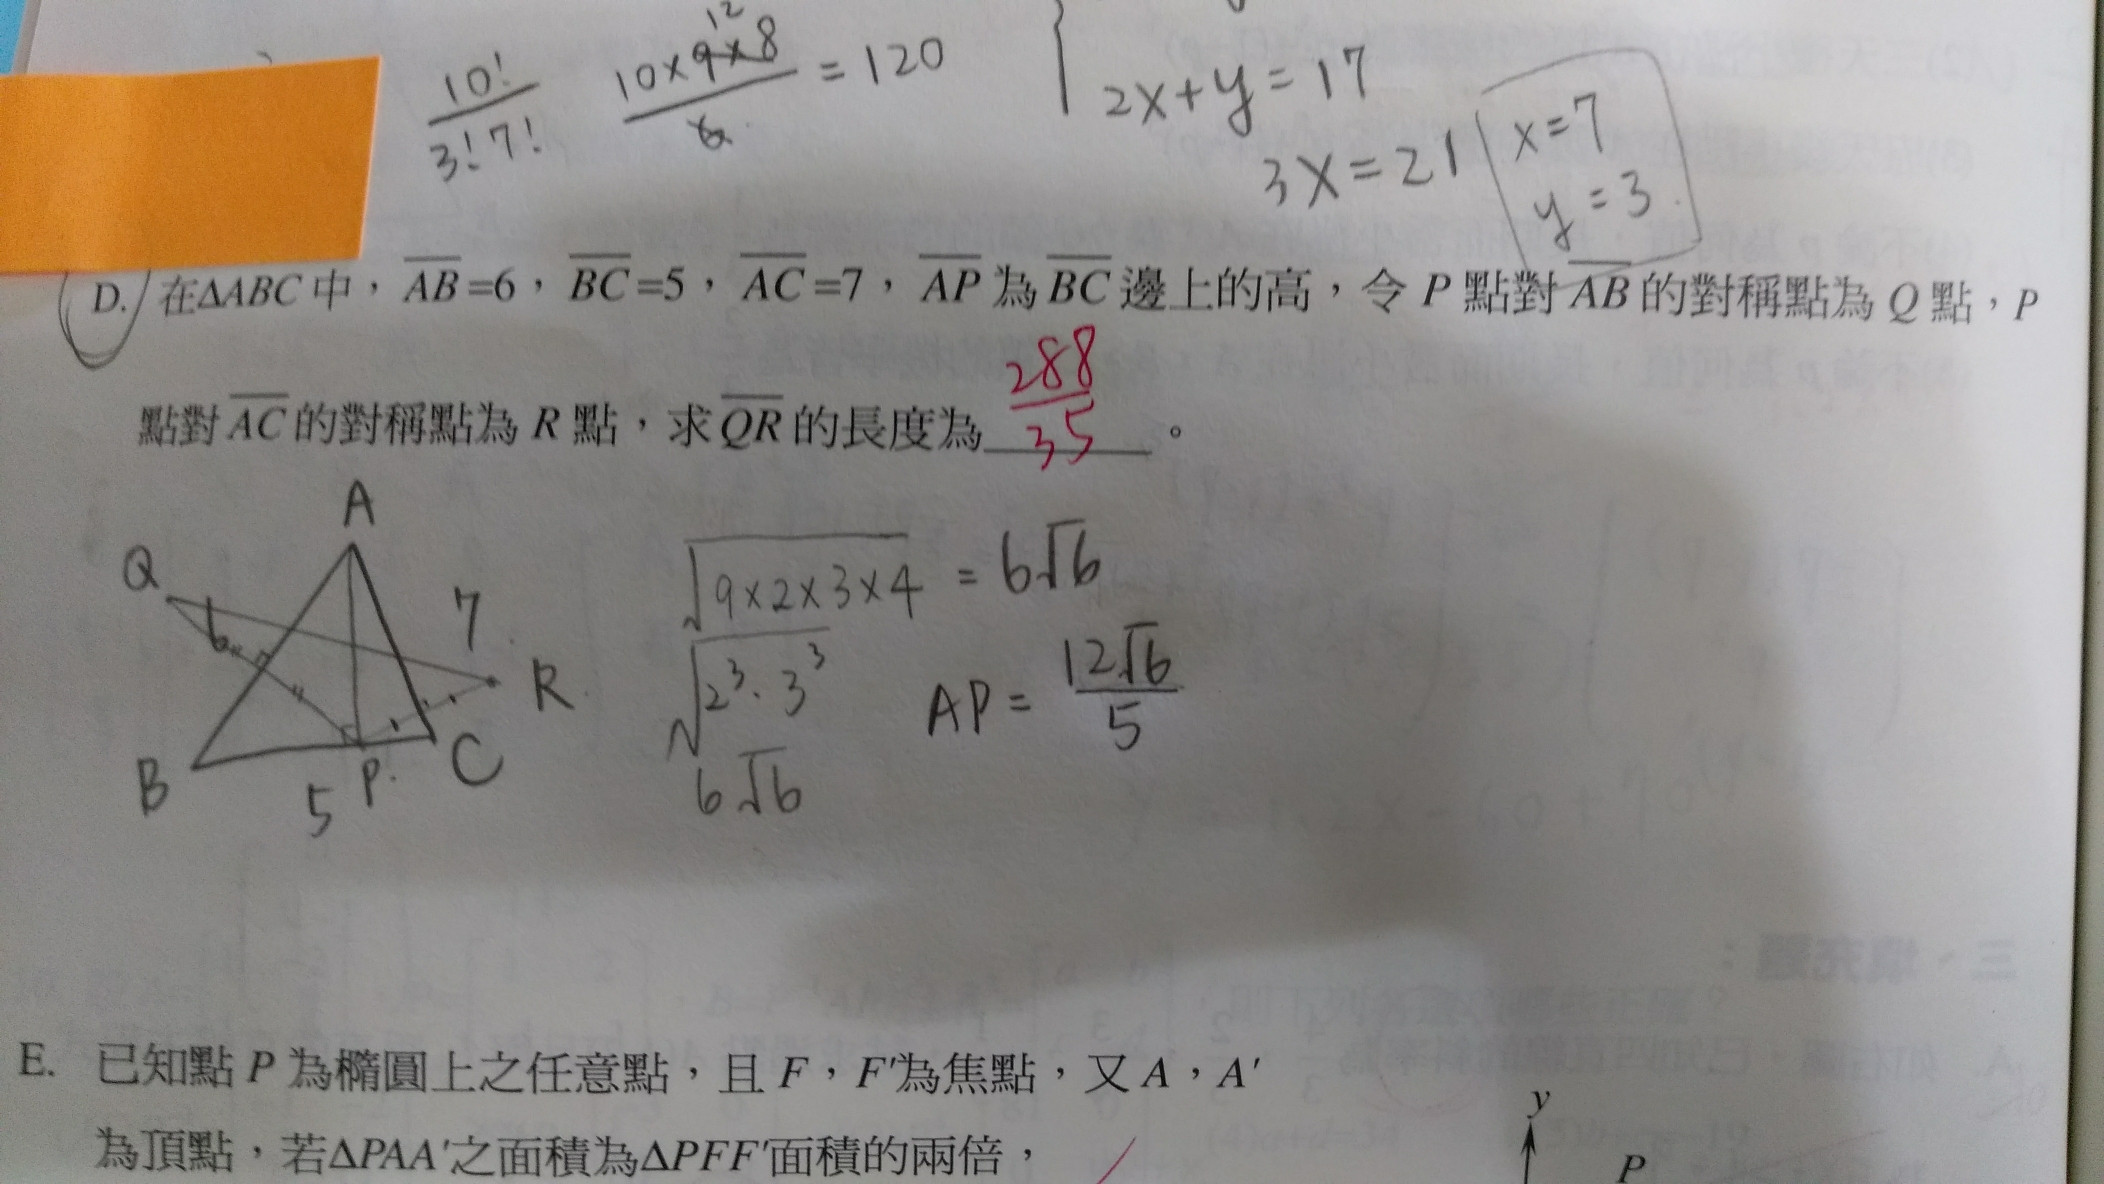 10!
3!7!
12
10×9×8
6
=120
2x+y=17
3x=21
x=7
y=3
D. 在ΔABC中，AB=6，BC=5，AC=7，AP為BC邊上的高，令P點對AB的對稱點為Q點，P
點對AC的對稱點為R點，求QR的長度為 288/35 。
A
Q
6
7
R
B
5
P
C
√9×2×3×4 = 6√6
√2³·3³
6√6
AP= 12√6/5
E. 已知點P為橢圓上之任意點，且F，F′為焦點，又A，A′
為頂點，若ΔPAA′之面積為ΔPFF′面積的兩倍，
y
P